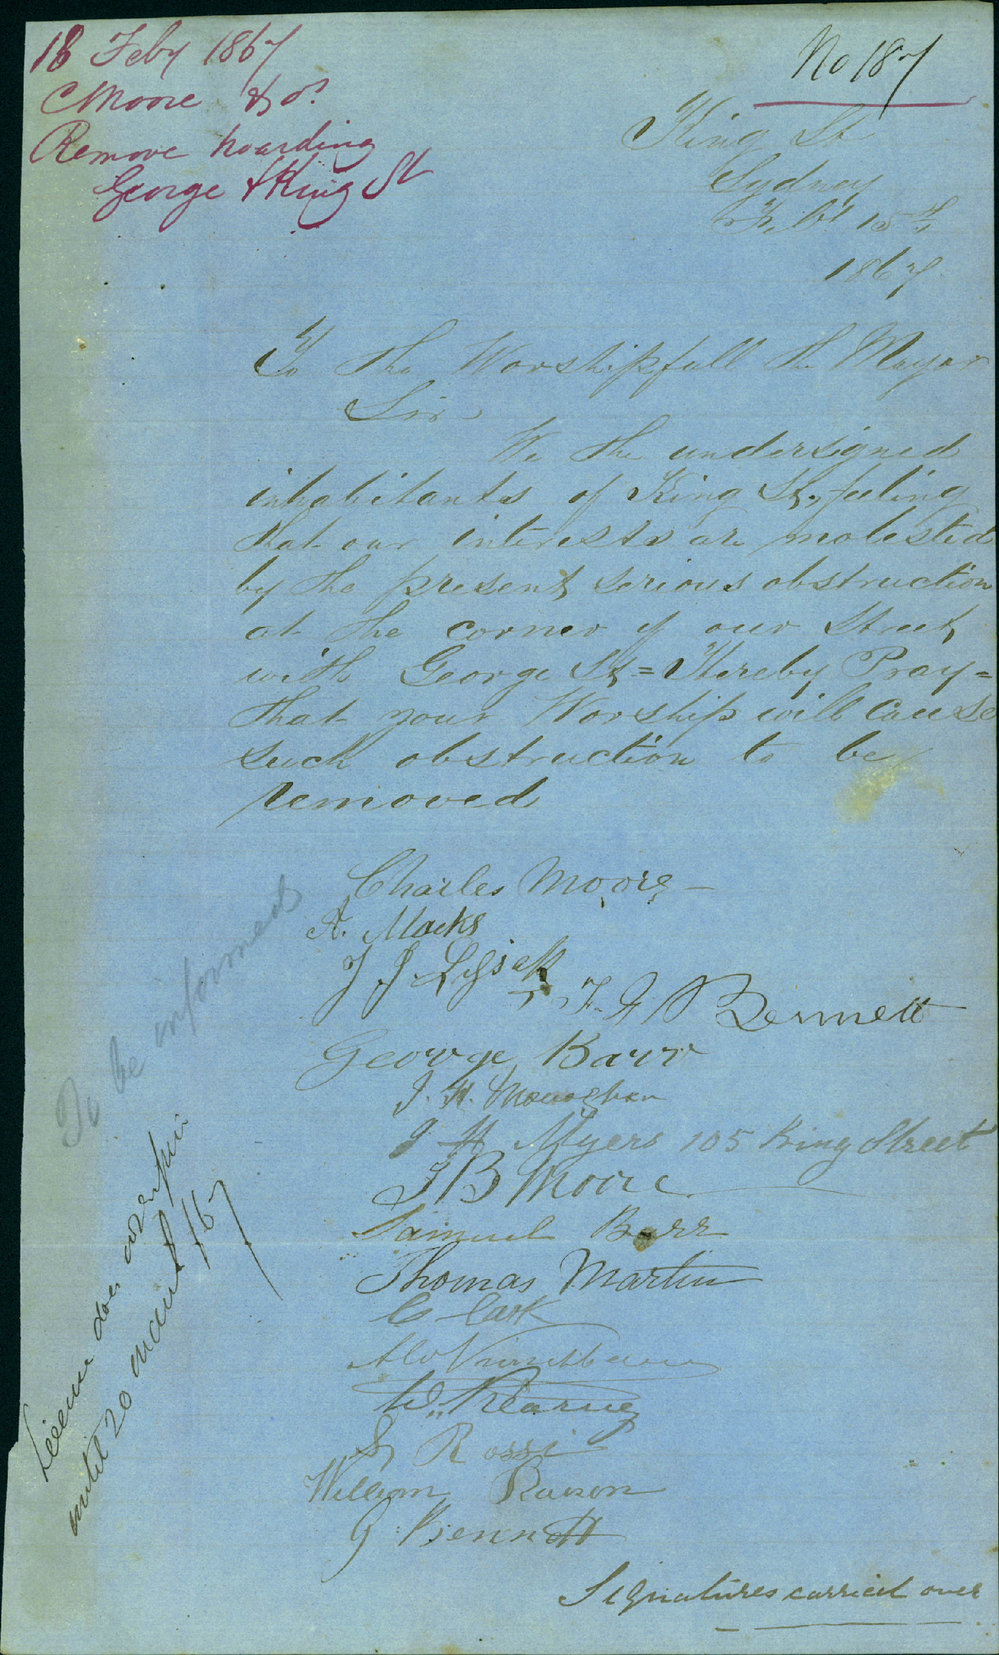 18 Feby 1867
C Moore & Ors
Remove hoarding
George & King St
No 187
King St
Sydney
Feby 15th
1867
To the Worshipfull the Mayor
Sir
We the undersigned
inhabitants of King St, feeling
that our interests are molested
by the present serious obstruction
at the corner of our Street
with George St = Thereby Pray =
that your Worship will cause
such obstruction to be
removed
Charles Moore
A. Marks
F. J. Bennett
George Barr
J. H. Monaghan
J H Myers 105 King Street
J B Moore
Samuel Barr
Thomas Martin
W. Kearney
S Rossi
William Rawson
G Bennett
Signatures carried over
To be informed
License does not expire
until 20 March /67